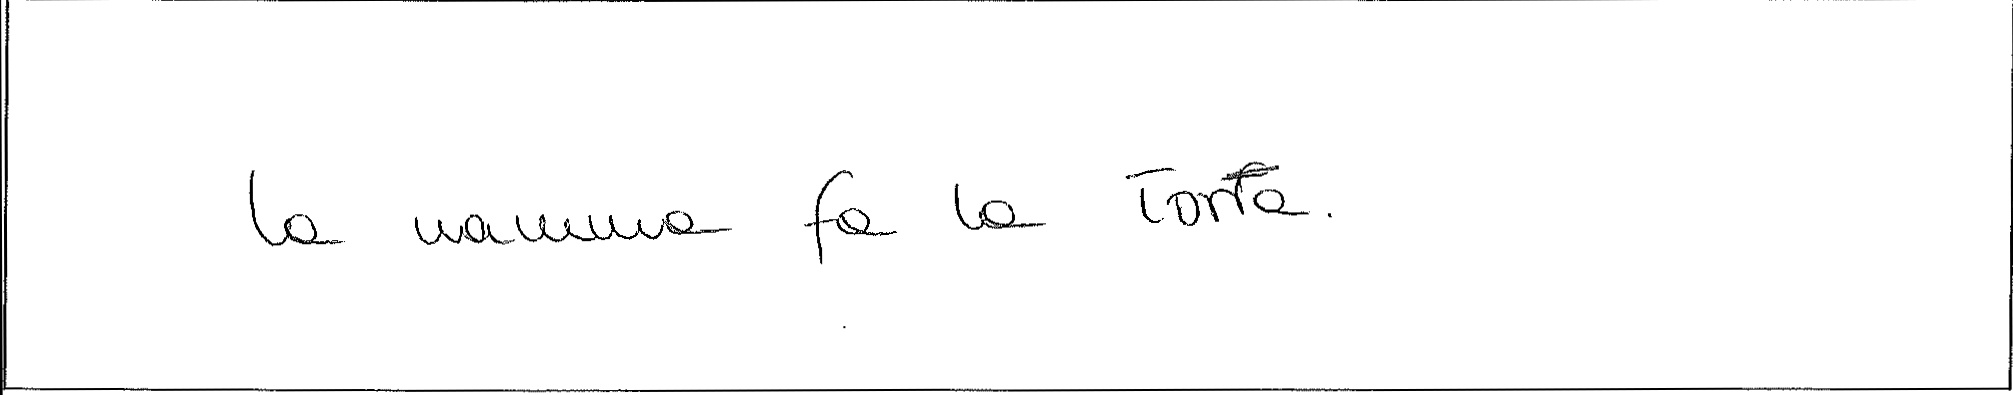 la mamma fa la Torta.